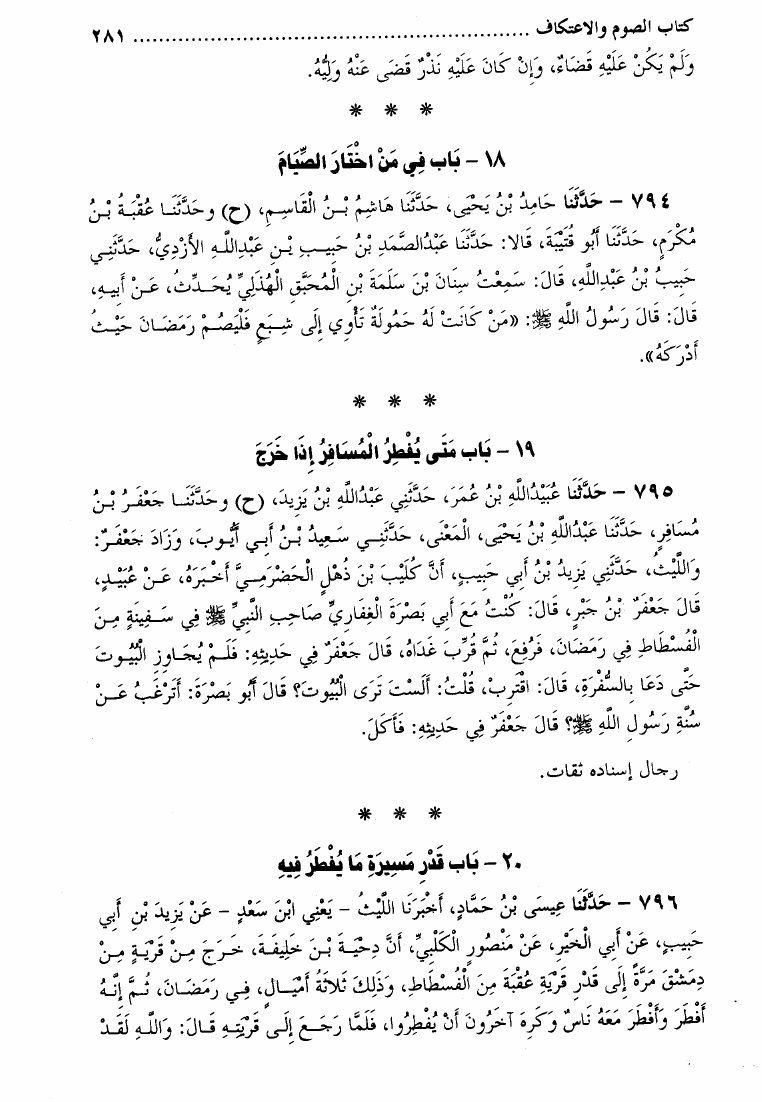 كتاب الصوم والاعتكاف ........................................................ ٢٨١
وَلَمْ يَكُنْ عَلَيْهِ قَضَاءٌ، وَإِنْ كَانَ عَلَيْهِ نَذْرٌ قَضَى عَنْهُ وَلِيُّهُ.
* * *
١٨ - بَاب فِي مَنْ اخْتَارَ الصِّيَامَ
٧٩٤ - حَدَّثَنَا حَامِدُ بْنُ يَحْيَى، حَدَّثَنَا هَاشِمُ بْنُ الْقَاسِمِ، (ح) وحَدَّثَنَا عُقْبَةُ بْنُ
مُكْرَمٍ، حَدَّثَنَا أَبُو قُتَيْبَةَ، قَالا: حَدَّثَنَا عَبْدُالصَّمَدِ بْنُ حَبِيبِ بْنِ عَبْدِاللَّهِ الأَزْدِيُّ، حَدَّثَنِي
حَبِيبُ بْنُ عَبْدِاللَّهِ، قَالَ: سَمِعْتُ سِنَانَ بْنَ سَلَمَةَ بْنِ الْمُحَبَّقِ الْهُذَلِيَّ يُحَدِّثُ، عَنْ أَبِيهِ،
قَالَ: قَالَ رَسُولُ اللَّهِ ﷺ: «مَنْ كَانَتْ لَهُ حَمُولَةٌ تَأْوِي إِلَى شِبَعٍ فَلْيَصُمْ رَمَضَانَ حَيْثُ
أَدْرَكَهُ».
* * *
١٩ - بَاب مَتَى يُفْطِرُ الْمُسَافِرُ إِذَا خَرَجَ
٧٩٥ - حَدَّثَنَا عُبَيْدُاللَّهِ بْنُ عُمَرَ، حَدَّثَنِي عَبْدُاللَّهِ بْنُ يَزِيدَ، (ح) وحَدَّثَنَا جَعْفَرُ بْنُ
مُسَافِرٍ، حَدَّثَنَا عَبْدُاللَّهِ بْنُ يَحْيَى، الْمَعْنَى، حَدَّثَنِي سَعِيدُ بْنُ أَبِي أَيُّوبَ، وَزَادَ جَعْفَرٌ:
وَاللَّيْثُ، حَدَّثَنِي يَزِيدُ بْنُ أَبِي حَبِيبٍ، أَنَّ كُلَيْبَ بْنَ ذُهْلٍ الْحَضْرَمِيَّ أَخْبَرَهُ، عَنْ عُبَيْدٍ،
قَالَ جَعْفَرٌ بْنُ جَبْرٍ، قَالَ: كُنْتُ مَعَ أَبِي بَصْرَةَ الْغِفَارِيِّ صَاحِبِ النَّبِيِّ ﷺ فِي سَفِينَةٍ مِنَ
الْفُسْطَاطِ فِي رَمَضَانَ، فَرُفِعَ، ثُمَّ قُرِّبَ غَدَاهُ، قَالَ جَعْفَرٌ فِي حَدِيثِهِ: فَلَمْ يُجَاوِزِ الْبُيُوتَ
حَتَّى دَعَا بِالسُّفْرَةِ، قَالَ: اقْتَرِبْ، قُلْتُ: أَلَسْتَ تَرَى الْبُيُوتَ؟ قَالَ أَبُو بَصْرَةَ: أَتَرْغَبُ عَنْ
سُنَّةِ رَسُولِ اللَّهِ ﷺ؟ قَالَ جَعْفَرٌ فِي حَدِيثِهِ: فَأَكَلَ.
رجال إسناده ثقات.
* * *
٢٠ - بَاب قَدْرِ مَسِيرَةِ مَا يُفْطَرُ فِيهِ
٧٩٦ - حَدَّثَنَا عِيسَى بْنُ حَمَّادٍ، أَخْبَرَنَا اللَّيْثُ - يَعْنِي ابْنَ سَعْدٍ - عَنْ يَزِيدَ بْنِ أَبِي
حَبِيبٍ، عَنْ أَبِي الْخَيْرِ، عَنْ مَنْصُورٍ الْكَلْبِيِّ، أَنَّ دِحْيَةَ بْنَ خَلِيفَةَ، خَرَجَ مِنْ قَرْيَةٍ مِنْ
دِمَشْقَ مَرَّةً إِلَى قَدْرِ قَرْيَةِ عُقْبَةَ مِنَ الْفُسْطَاطِ، وَذَلِكَ ثَلَاثَةُ أَمْيَالٍ، فِي رَمَضَانَ، ثُمَّ إِنَّهُ
أَفْطَرَ وَأَفْطَرَ مَعَهُ نَاسٌ وَكَرِهَ آخَرُونَ أَنْ يُفْطِرُوا، فَلَمَّا رَجَعَ إِلَى قَرْيَتِهِ قَالَ: وَاللَّهِ لَقَدْ